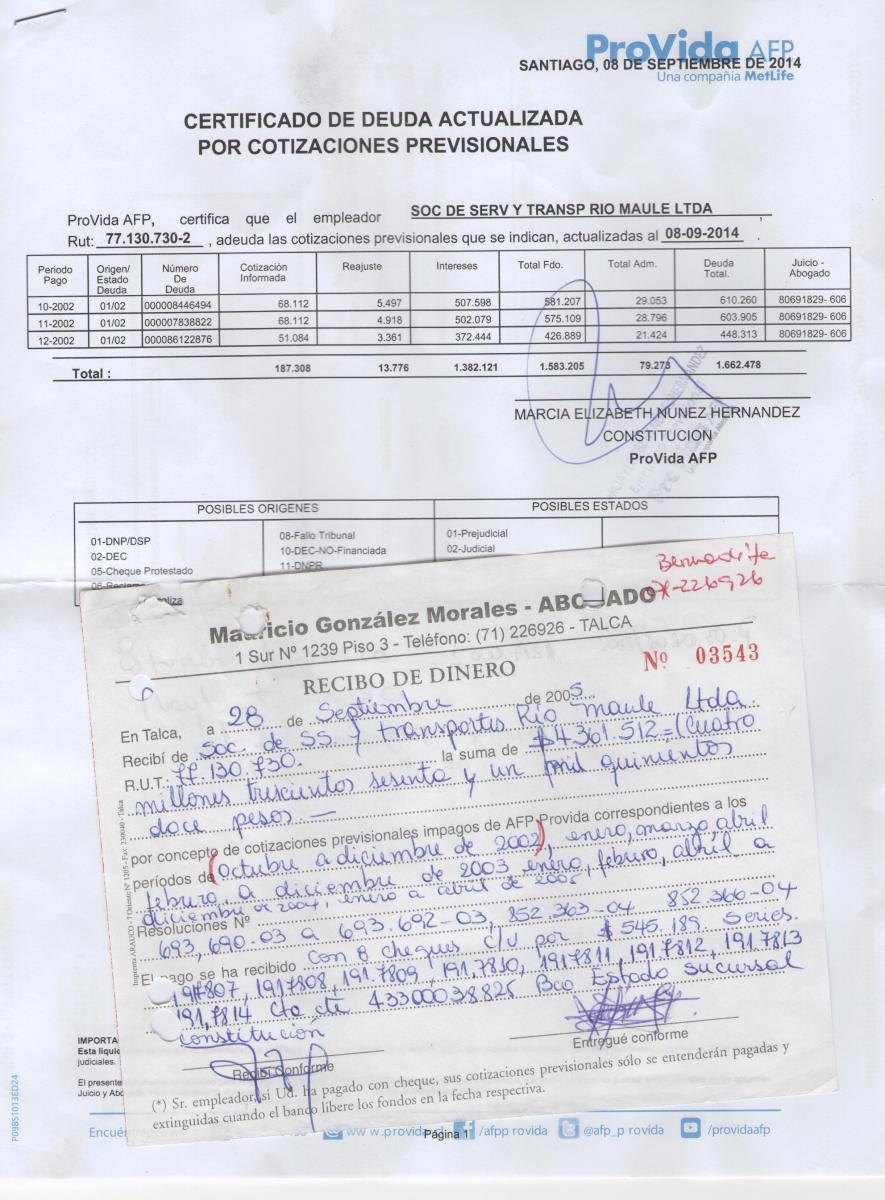 ProVida AFP
SANTIAGO, 08 DE SEPTIEMBRE DE 2014
Una compañía MetLife
CERTIFICADO DE DEUDA ACTUALIZADA
POR COTIZACIONES PREVISIONALES
ProVida AFP, certifica que el empleador SOC DE SERV Y TRANSP RIO MAULE LTDA ,
Rut: 77.130.730-2 , adeuda las cotizaciones previsionales que se indican, actualizadas al 08-09-2014 .
Periodo Pago Origen/ Estado Deuda Número De Deuda Cotización Informada Reajuste Intereses Total Fdo. Total Adm. Deuda Total. Juicio - Abogado
10-2002 01/02 000008446494 68.112 5.497 507.598 581.207 29.053 610.260 80691829- 606
11-2002 01/02 000007838822 68.112 4.918 502.079 575.109 28.796 603.905 80691829- 606
12-2002 01/02 000086122876 51.084 3.361 372.444 426.889 21.424 448.313 80691829- 606
Total : 187.308 13.776 1.382.121 1.583.205 79.273 1.662.478
MARCIA ELIZABETH NUNEZ HERNANDEZ
CONSTITUCION
ProVida AFP
POSIBLES ORIGENES POSIBLES ESTADOS
01-DNP/DSP 08-Fallo Tribunal 01-Prejudicial
02-DEC 10-DEC-NO-Financiada 02-Judicial
05-Cheque Protestado 11-DNPR
Mauricio González Morales - ABOGADO
1 Sur Nº 1239 Piso 3 - Teléfono: (71) 226926 - TALCA
RECIBO DE DINERO
Nº 03543
En Talca, a 28 de Septiembre de 2005
Recibí de Soc. de SS y transportes Rio Maule Ltda
R.U.T: 77.130.730. la suma de $4.361.512=(Cuatro
millones trescientos sesenta y un mil quinientos
doce pesos —
por concepto de cotizaciones previsionales impagos de AFP Provida correspondientes a los
períodos de (Octubre a diciembre de 2002), enero, marzo, abril
febrero, a diciembre de 2003 enero, febrero, abril a
diciembre de 2004, enero a abril de 2005
Resoluciones Nº
693,690-03 a 693.692-03, 852.363-04 852.366-04
El pago se ha recibido Con 8 cheques c/u por $ 545.189 Series.
1917807, 1917808, 191.7809, 191.7810, 1917811, 191.7812, 191.7813
191.7814 Cta cte 43300038825 Bco Estado sucursal
constitución
Recibí conforme Entregué conforme
(*) Sr. empleador, si Ud. ha pagado con cheque, sus cotizaciones previsionales sólo se entenderán pagadas y
extinguidas cuando el banco libere los fondos en la fecha respectiva.
IMPORTA
Esta liquid
judiciales.
El presente
Juicio y Abo
Encuén www.provida.cl Página 1 /afpprovida @afp_provida /providaafp
P09851013ED24